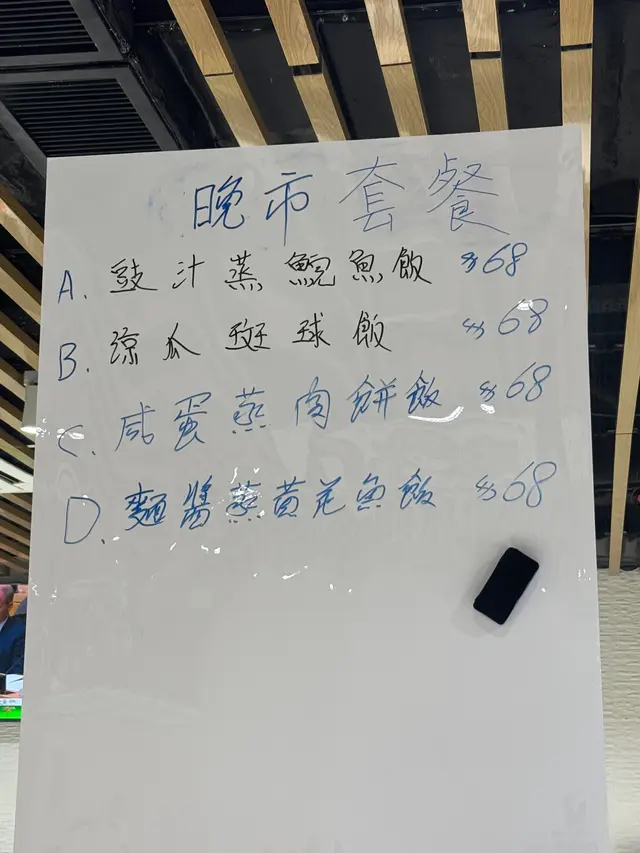 晚市套餐
A. 豉汁蒸鯇魚飯 $68
B. 涼瓜斑球飯 $68
C. 咸蛋蒸肉餅飯 $68
D. 麵醬蒸黃花魚飯 $68